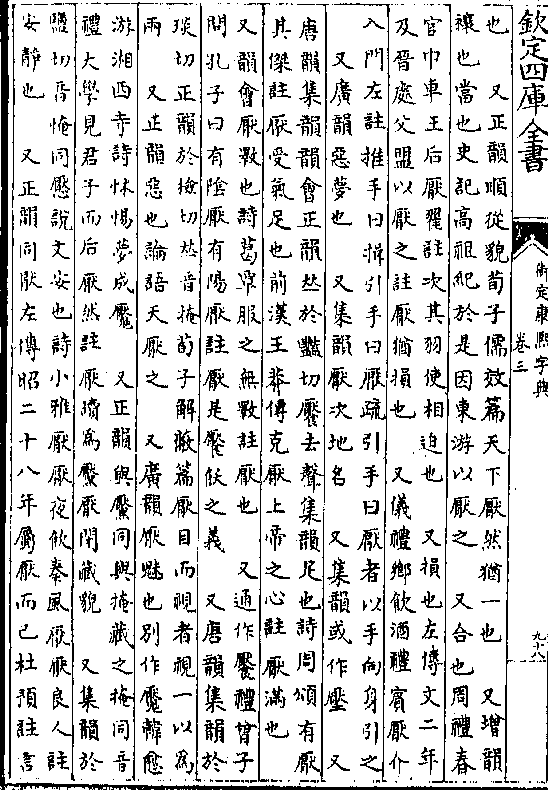 欽定四庫全書
御定康熙字典
卷三
九十八
也　又正韻順從貌荀子儒效篇天下厭然猶一也　又增韻
禳也當也史記高祖紀於是因東游以厭之　又合也周禮春
官巾車王后厭翟註次其羽使相迫也　又損也左傳文二年
及晉處父盟以厭之註厭猶損也　又儀禮鄉飲酒禮賓厭介
入門左註推手曰揖引手曰厭疏引手曰厭者以手向身引之
　又廣韻惡夢也　又集韻厭次地名　又集韻或作壓　又
唐韻集韻韻會正韻𠀤於豔切饜去聲集韻足也詩周頌有厭
其傑註厭受氣足也前漢王莽傳克厭上帝之心註厭滿也
又韻會厭斁也詩葛覃服之無斁註厭也　又通作饜禮曾子
問孔子曰有陰厭有陽厭註厭是饜飫之義　又唐韻集韻於
琰切正韻於檢切𠀤音掩荀子解蔽篇厭目而視者視一以為
兩　又正韻惡也論語天厭之　又廣韻厭魅也別作魘韓愈
游湘西寺詩怵惕夢成魘　又正韻與黶同與掩藏之掩同音
禮大學見君子而后厭然註厭讀為黶厭閉藏貌　又集韻於
鹽切音懕同懕說文安也詩小雅厭厭夜飲秦風厭厭良人註
安靜也　又正韻同猒左傳昭二十八年屬厭而已杜預註言